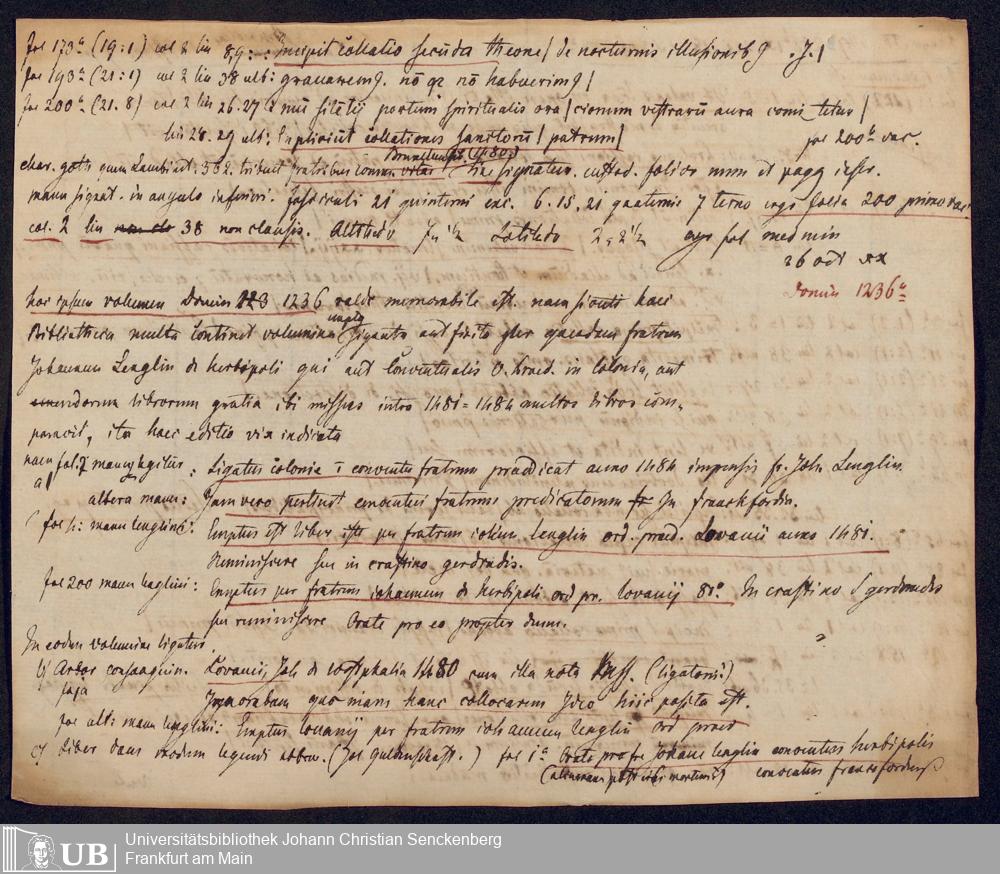 fol 173a (19:1) col 2 lin 8.9: :Incipit collatio secunda theone/ de nocturnis illusionib9 . J. /
fol 193a (21:1) col 2 lin 38 ult: grauarem9. nō qz nō habuerim9/
fol 200a (21.8) col 2 lin 26.27 portum spiritualis ora/cionum vestrarū aura comi tetur/
lin 28. 29 ult: Expliciūt collationes sanctorū/ patrum/ fol 200b vac.
char. goth. quem Lambinet: 362. tribuit fratribus comm. vitae Bruxellensib (1480:) sine signatur. custod. folior num et pagg
manu signat. in angulo inferiori. 21 quinterni exc. 6. 15. 21 quaternis 7 terno ergo folia 200 primo vac
col. 2 lin 38 non clausis. Altitudo 7, 1/2 Latitudo 2, 2 1/2 ergo fol med min
26 oct xx
Domin 1236a
hoc ipsum volumen Domin 1236 valde memorabile est. nam sicuti haec
Bibliotheca multa continet volumina empta ligata aut scripta per eundem fratrem
Johannem Lenglin de herbipoli qui aut Conventualis O. Praed. in Colonia, aut
librorum gratia ibi missus intra 1481=1484 multos libros com,
paravit, ita haec editio vix indicata
nam fol. 1 a : Ligatus Colonie ī conventu fratrum praedicat anno 1484 impensis fr. Joh Lenglin.
altera manu: Jam vero pertinet conventui fratrum predicatorum In franckfordia.
(fol 1: manu lenglini: Emptus est liber iste per fratrem iohem Lenglin ord. praed. Lovanii anno 1481.
Reminiscere seu in crastino gerdrudis.
fol 200 manu lenglini: Emptus per fratrem iohannem de herbipoli ord pr. lovanij 80o In crastino S gerdrudis
seu reminiscere Orate pro eo propter deum.
In eodem volumine ligatus
b) Arbor consanguin. Lovanij Joh de westphalia 1480 cum illa nota (ligatoris?)
Ignorabam quo nam hanc collocarem Ideo hiic posita est.
fol ult: manu lenglini: Emptus louanij per fratrem iohannem lenglin Ord praed
c) Liber dans modum legendi abbrev. fol 1a Orate pro fre Johanne lenglin conventus herbipolis
conventus francofordens
Universitätsbibliothek Johann Christian Senckenberg
Frankfurt am Main
UB